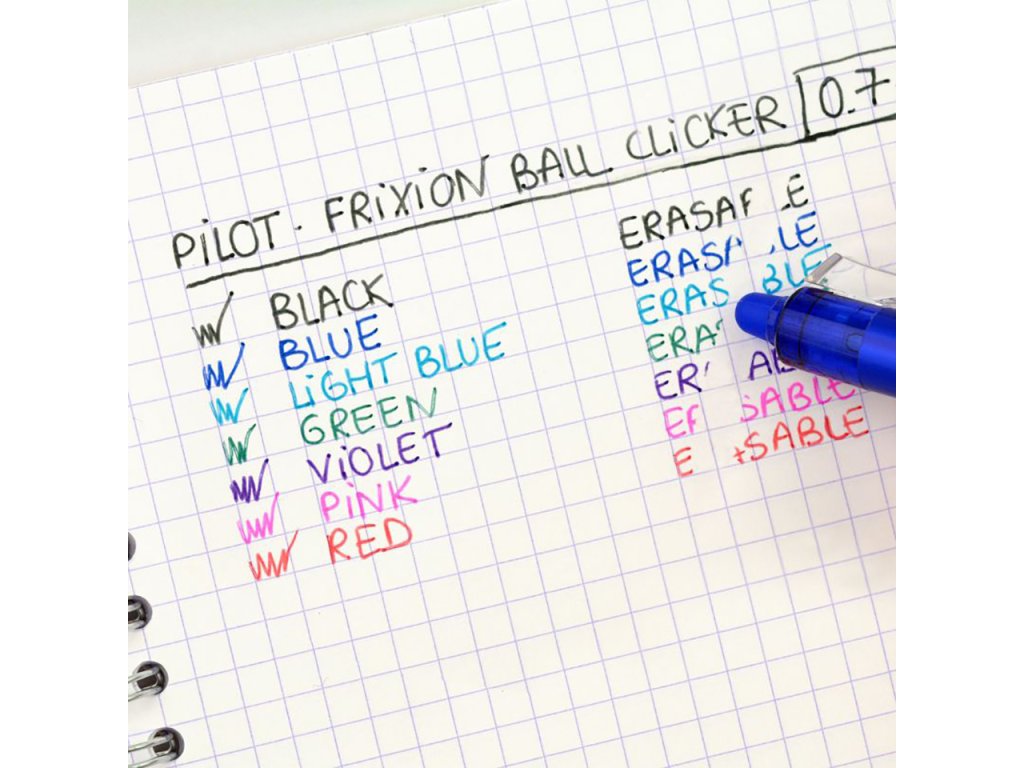 PiLOT. FRiXiON BALL CLiCKER 0.7
BLACK
BLUE
LiGHT BLUE
GREEN
ViOLET
PiNK
RED
ERASA LE
ERAS LE
ERAS BLE
ERA
ER AB
E SABLE
E SABLE